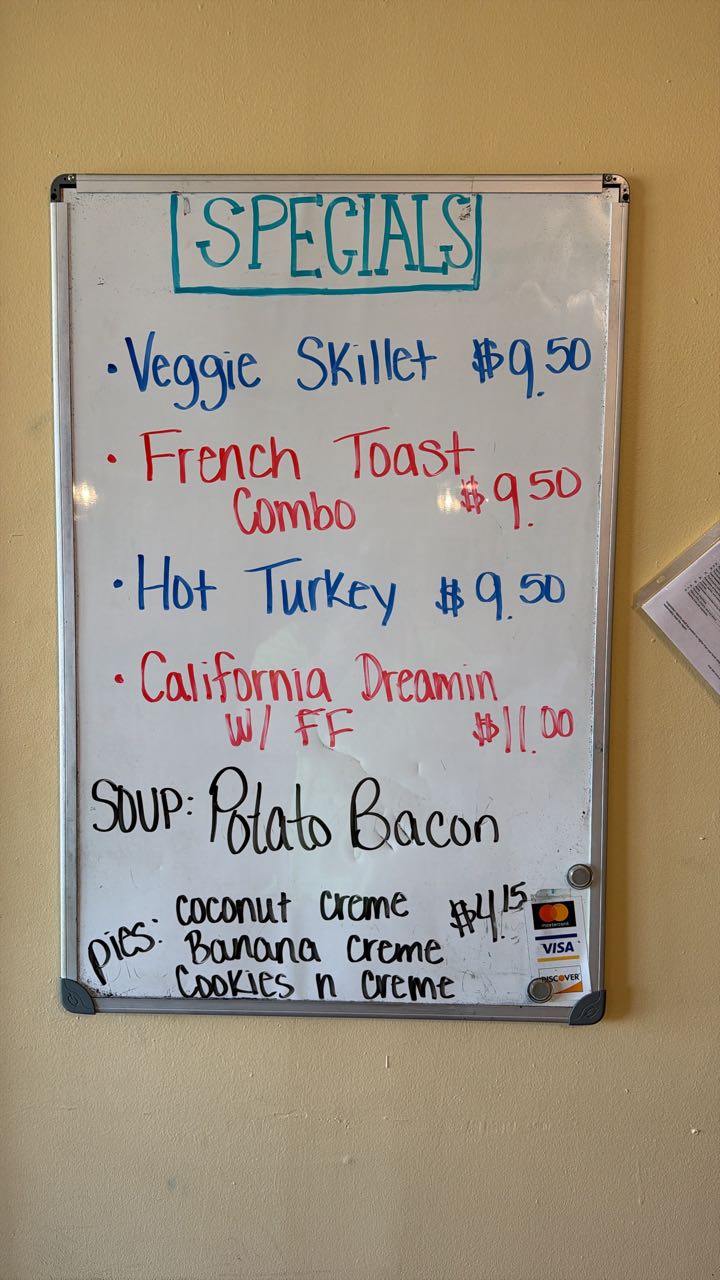 SPECIALS
• Veggie Skillet $9.50
• French Toast
Combo $9.50
• Hot Turkey $9.50
• California Dreamin
W/ FF $11.00
SOUP: Potato Bacon
pies: coconut creme $4.15
Banana creme
Cookies n creme
mastercard
VISA
DISCOVER